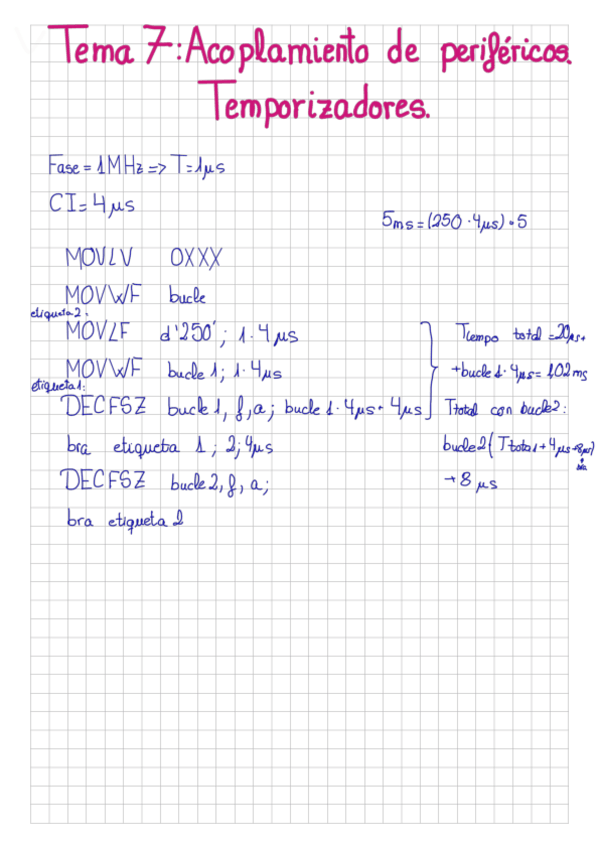 Tema 7: Acoplamiento de periféricos.
Temporizadores.
Fase = 1MHz => T = 1µs
CI = 4µs
5ms = (250 · 4µs) · 5
MOVLW 0XXX
MOVWF bucle
etiqueta 2:
MOVLF d'250'; 1 · 4µs
MOVWF bucle 1; 1 · 4µs
etiqueta 1:
DECFSZ bucle 1, f, a; bucle 1 · 4µs + 4µs
bra etiqueta 1; 2; 4µs
DECFSZ bucle 2, f, a;
bra etiqueta 2
Tiempo total = 20µs +
+ bucle 1 · 4µs = 1,02ms
Ttotal con bucle 2:
bucle 2 (Ttotal + 4µs + 8µs)
bra
+ 8µs